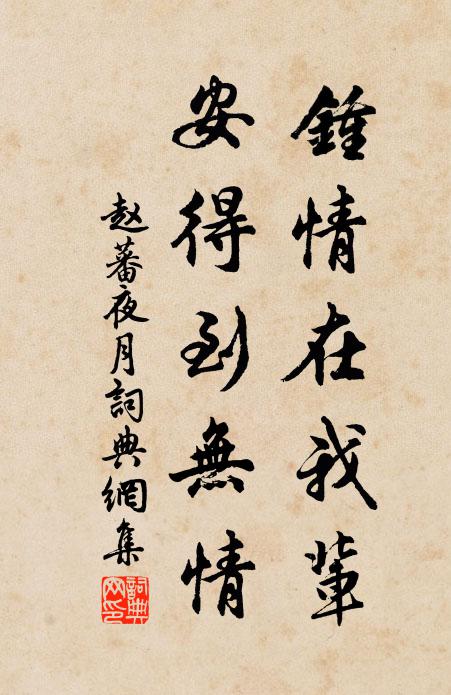 鍾情在我軰
安得到無情
赵蕃夜月詞典網集
詞典
网印